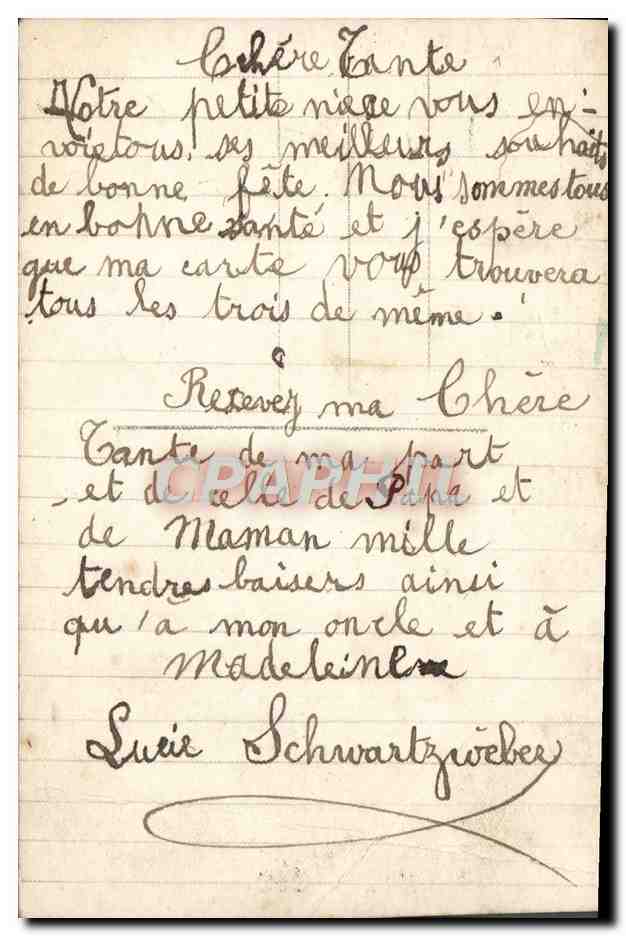 Chére Tante
Votre petite niece vous en-
voie tous ses meilleurs souhaits
de bonne fête. Nous sommes tous
en bonne santé et j'espère
que ma carte vous trouvera
tous les trois de même.
Resevez ma Chère
Tante de ma part
et de celle de Papa et
de Maman mille
tendres baisers ainsi
qu'à mon oncle et à
Madeleine
Lucie Schwartzwèber
CPAPHIL